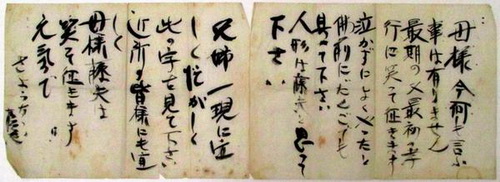 母様今何も言ふ
事は有りません
最期の又最初の孝
行に笑って征きます
泣かずによくやったと
仏前にだんごでも
具へて下さい
人形は藤夫と思って
下さい
兄姉一現に宜
しく忙がしく
此の字で見て下さい
近所の皆様にも宜
しく
母様藤夫は
笑って征きます
元気で
さようなら